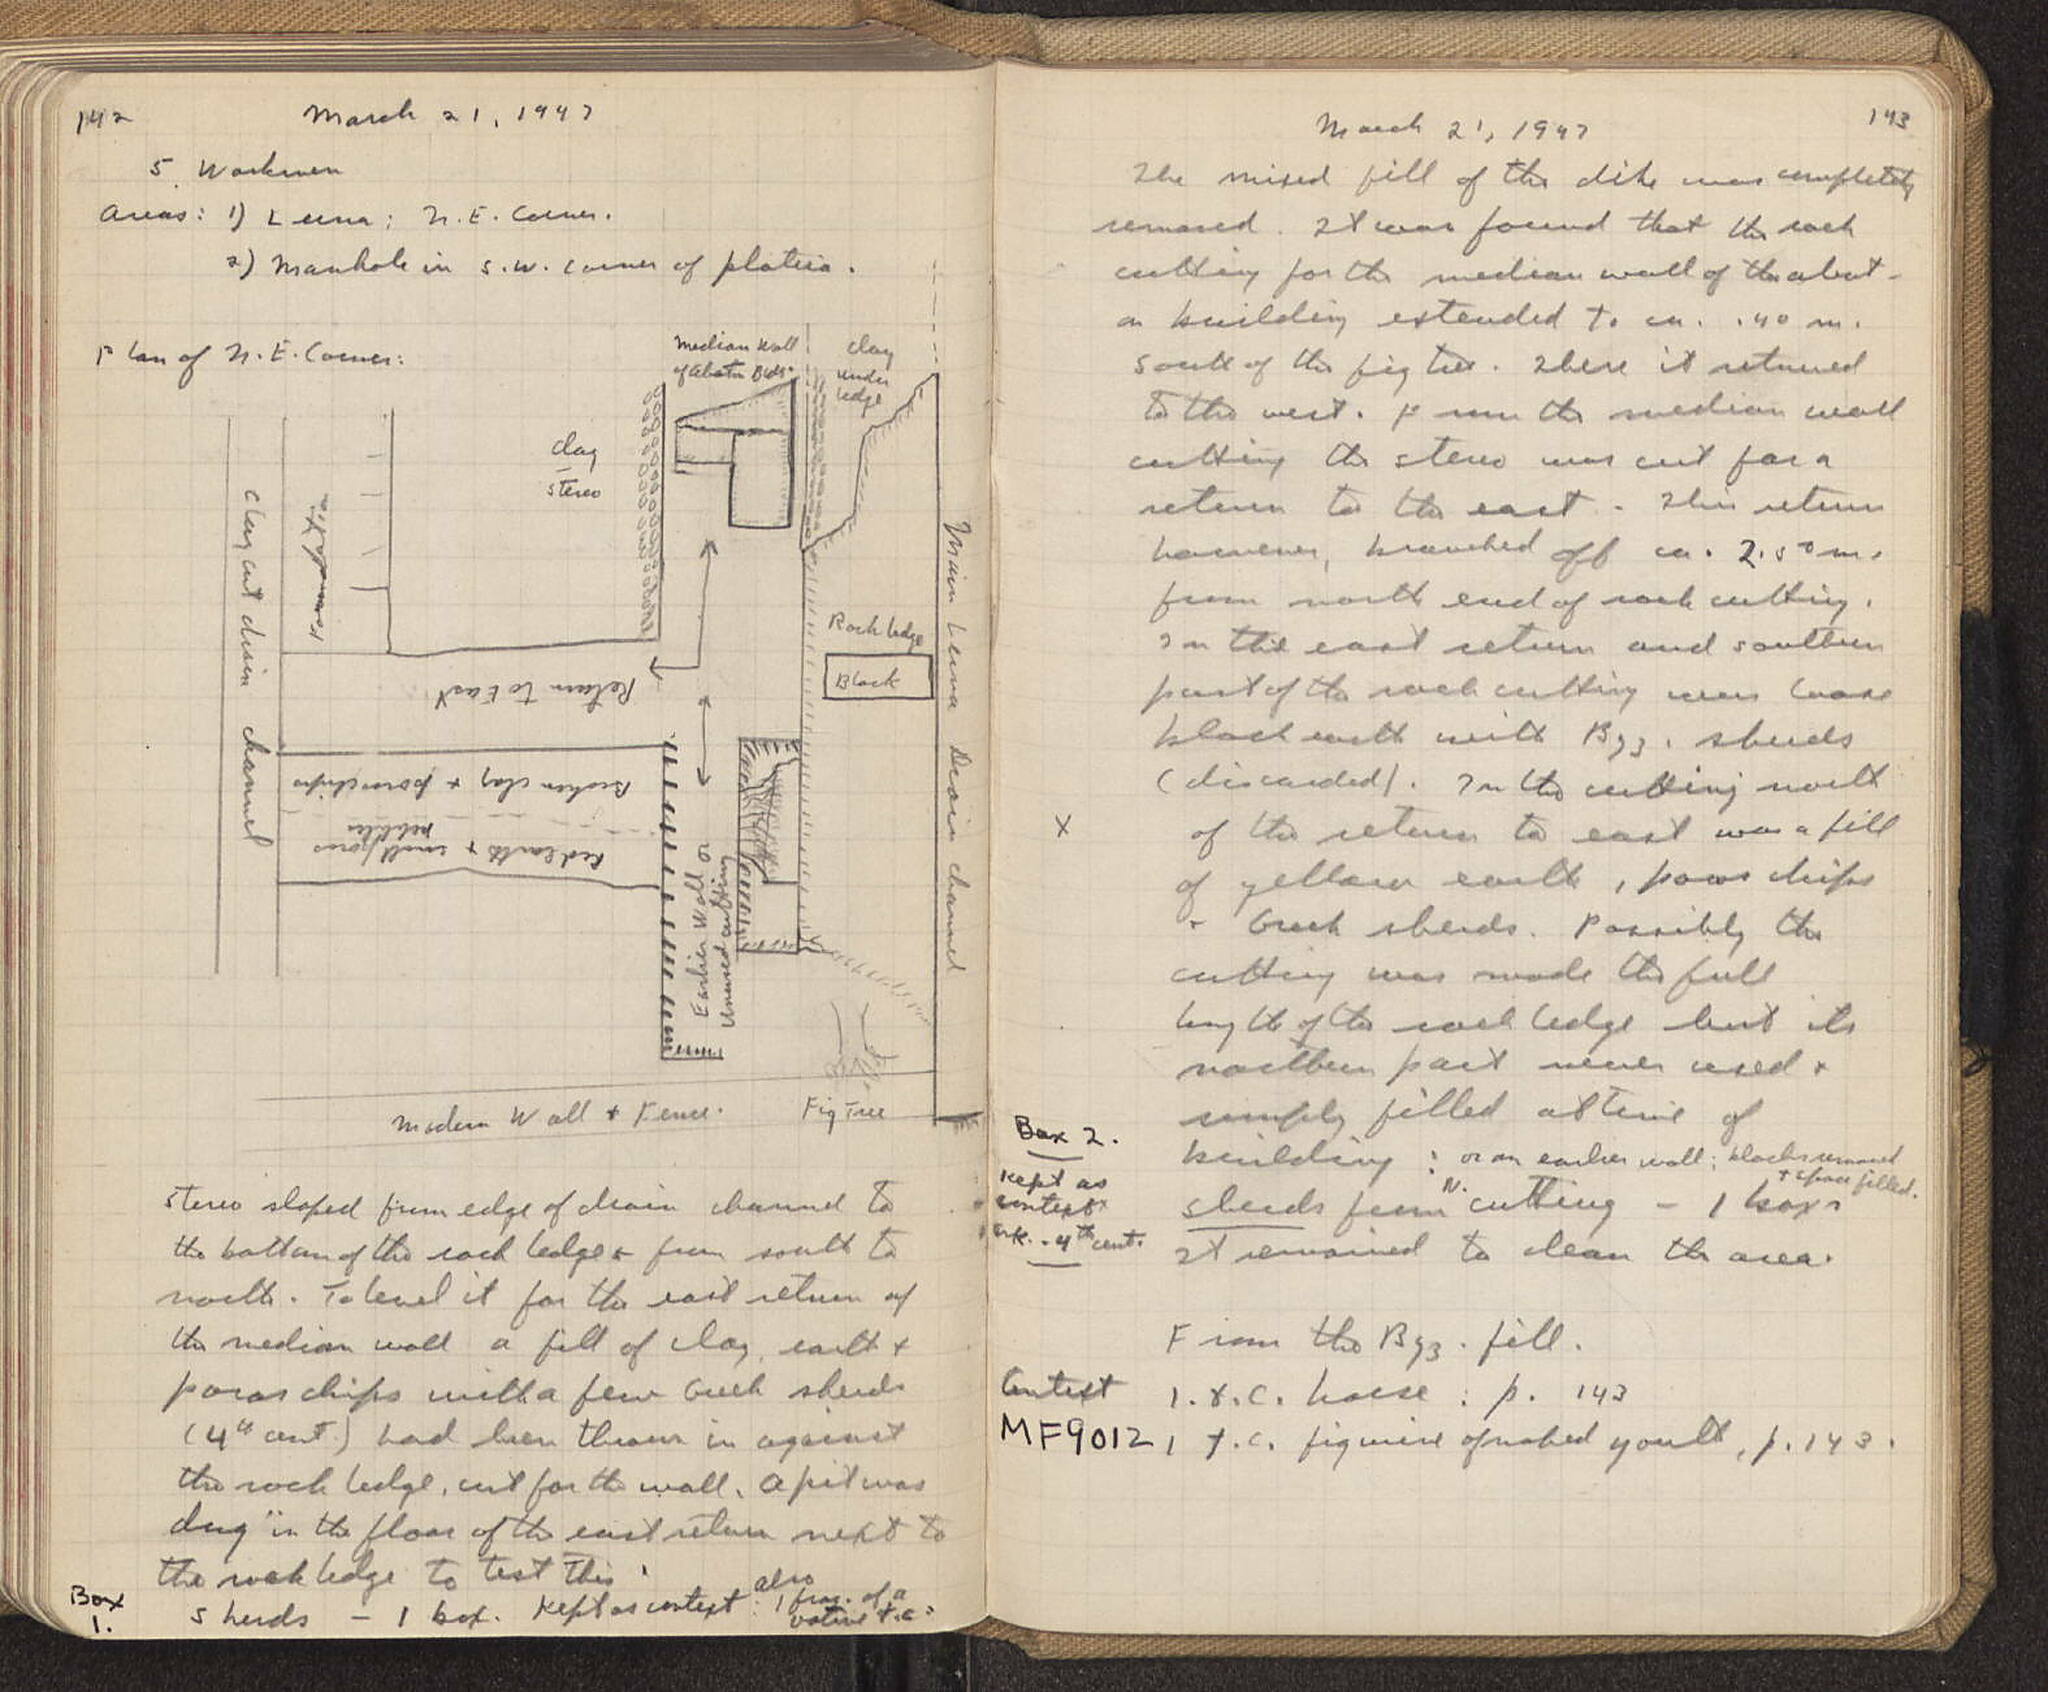 142
March 21, 1947
5 Workmen
Areas: 1) Lerna; N.E. Corner.
2) Manhole in S.W. Corner of plateia.
Plan of N.E. Corner:
Median Wall
of Abaton Bldg.
clay
under
ledge
clay
stereo
Clay cut drain channel
Foundation
Return to East
Rock ledge
Block
Main Lerna Drain channel
Broken clay + poros chips
Red earth + small poros
pebbles
Earlier Wall or
Unused cutting
Modern Wall + Fence.
Fig Tree
Stereo sloped from edge of drain channel to
the bottom of the rock ledge & from south to
north. To level it for the east return of
the median wall a fill of clay, earth +
poros chips with a few Greek sherds
(4th cent.) had been thrown in against
the rock ledge, cut for the wall. A pit was
dug in the floor of the east return next to
the rock ledge to test this.
Box
1.
Sherds – 1 box. Kept as context: also
1 frag. of a
votive t.c.
143
March 21, 1947
The mixed fill of the dike was completely
removed. It was found that the rock
cutting for the median wall of the abat-
on building extended to ca. .40 m.
south of the fig tree. There it returned
to the west. From the median wall
cutting the stereo was cut for a
return to the east. This return
however, branched off ca. 2.50 m.
from north end of rock cutting.
In the east return and southern
part of the rock cutting was loose
black earth with Byz. sherds
(discarded). In the cutting north
X
of the return to east was a fill
of yellow earth, poros chips
+ Greek sherds. Possibly the
cutting was made the full
length of the rock ledge but its
northern part never used +
simply filled at time of
building: or an earlier wall; blocks removed
+ space filled.
Box 2.
Kept as
context
Grk. - 4th cent.
Sherds from N. cutting – 1 box
It remained to clean the area.
From the Byz. fill.
Context
1. t.c. horse: p. 143
MF9012
1 t.c. figurine of naked youth, p. 143.